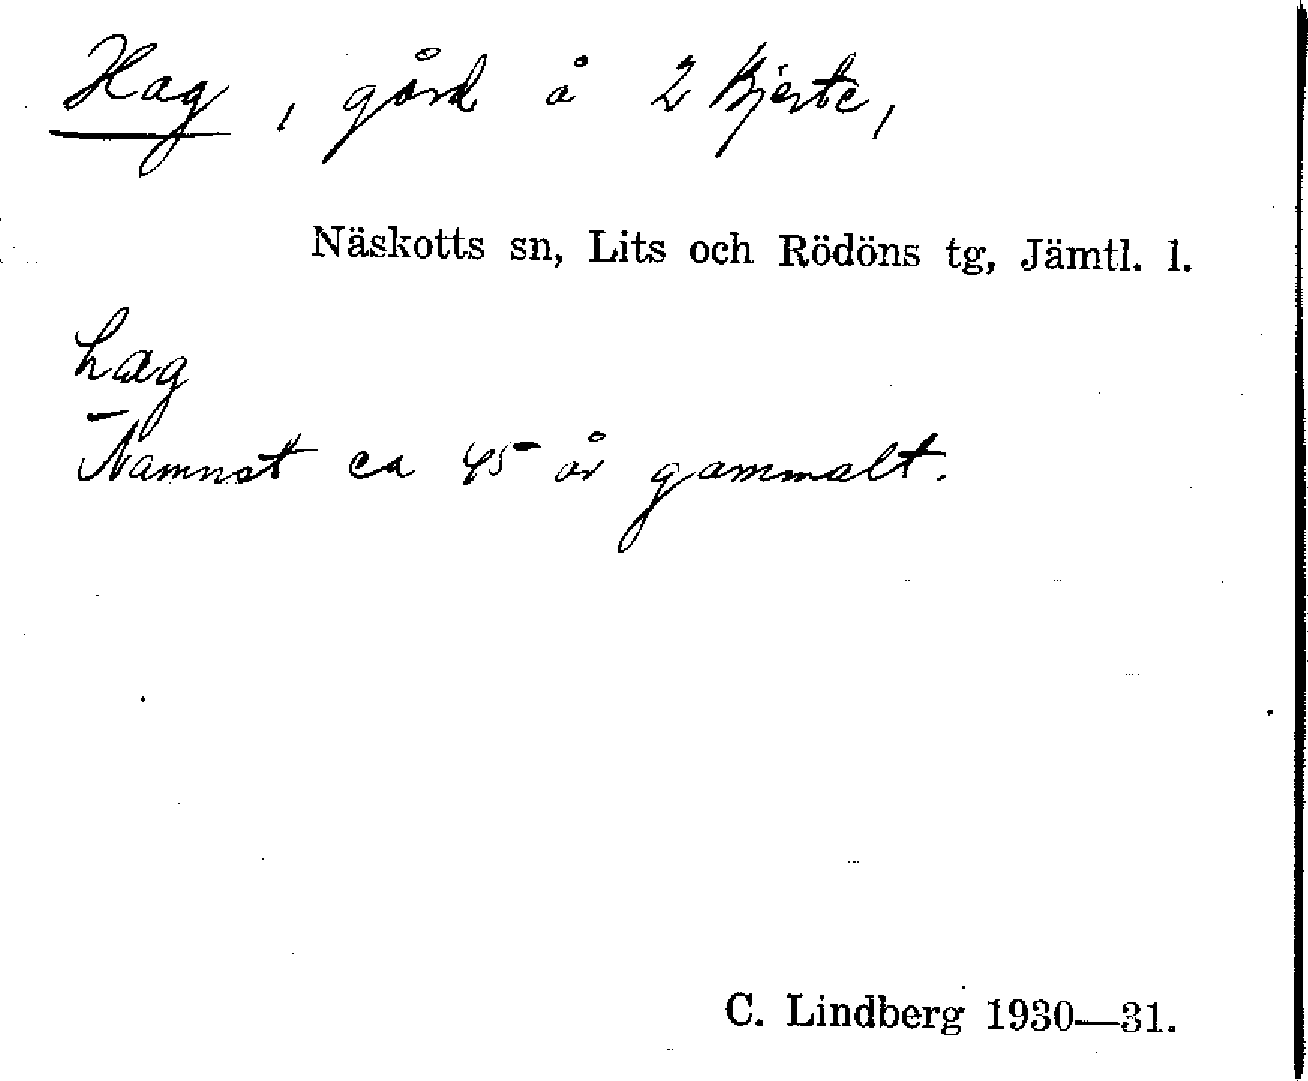 Hag, gård å 2 Bjerte,
Näskotts sn, Lits och Rödöns tg, Jämtl. l.
hag
Namnet ca 45 år gammalt.
C. Lindberg 1930—31.